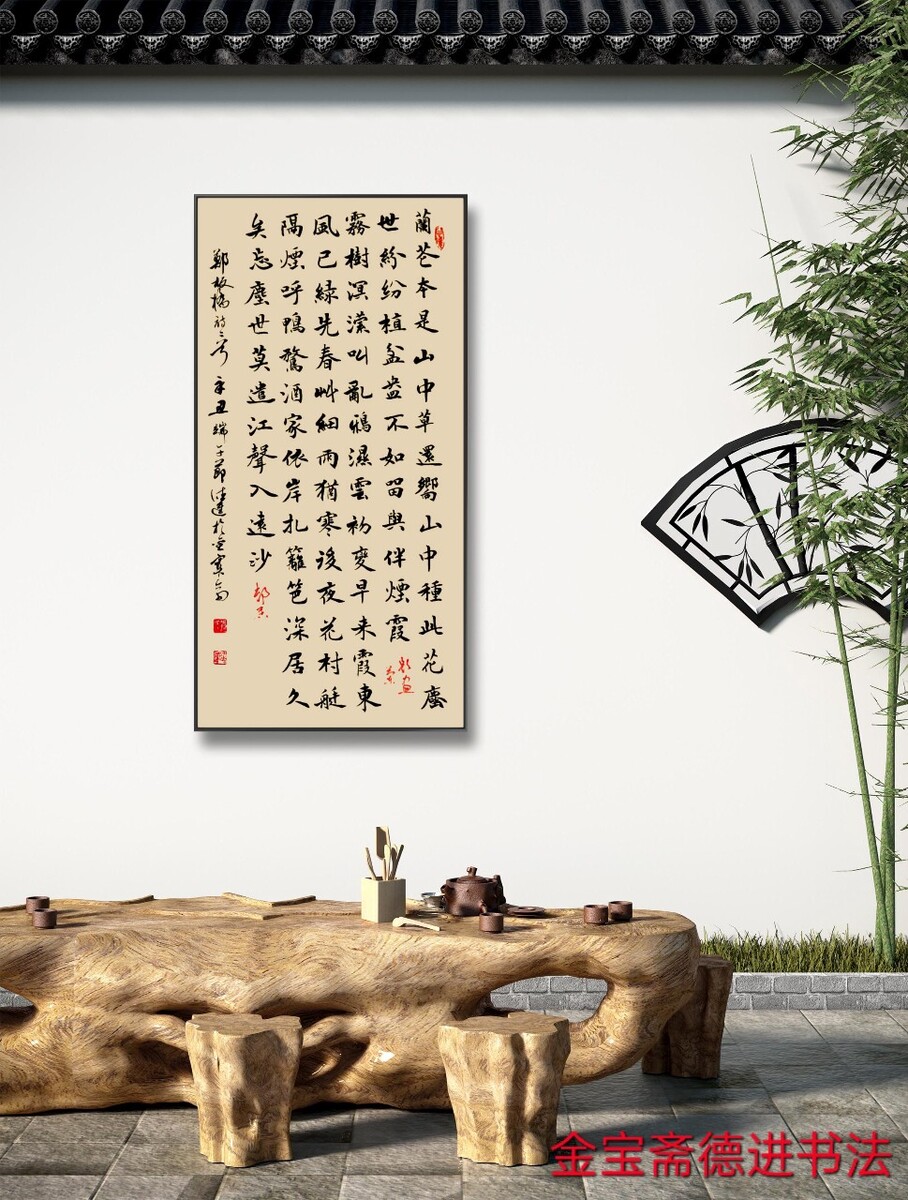 蘭芲本是山中草還嚮山中種此花塵
世紛紛植盆盎不如畱與伴煙霞
霧樹溟濛叫亂鴉濕雲初變早来霞東
風已綠先春艸細雨猶寒後夜花村艇
隔煙呼鴨鶩酒家依岸扎籬笆深居久
矣忘塵世莫遣江聲入遠沙
邨居
鄭板橋詩二首 辛丑端午節德進於金寶斋
金宝斋德进书法